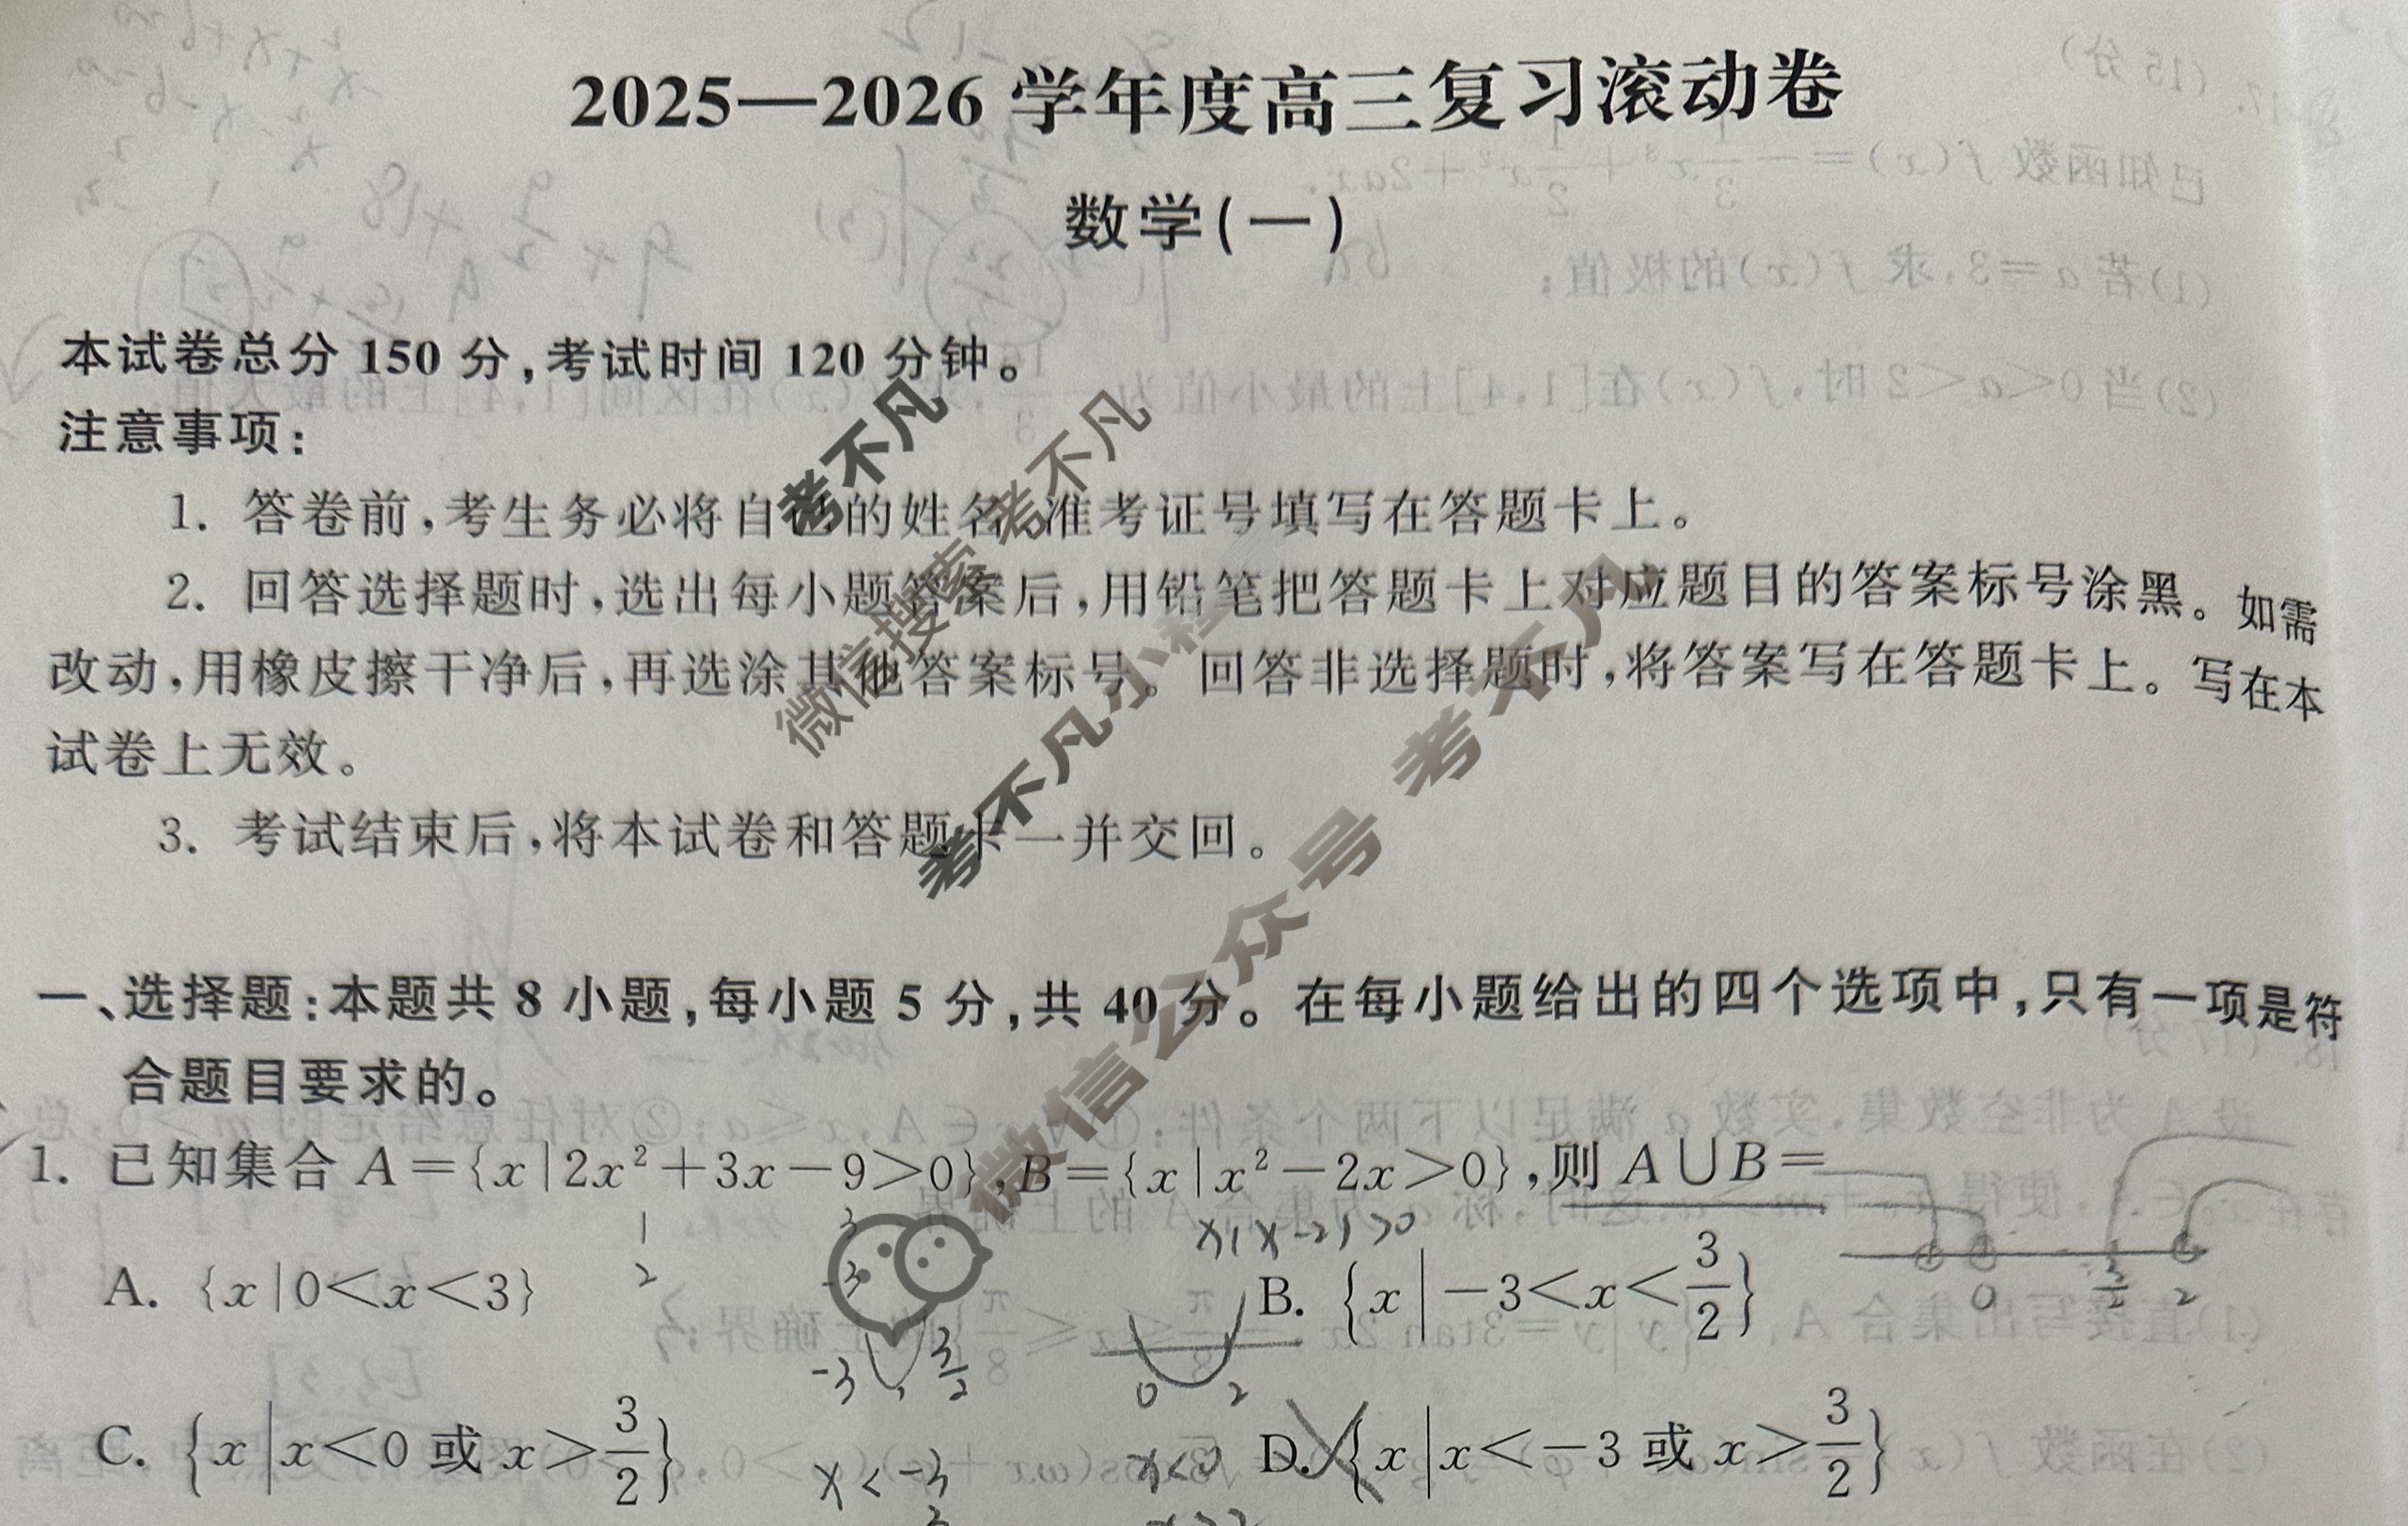 2025—2026 学年度高三复习滚动卷
数学(一)
本试卷总分 150 分,考试时间 120 分钟。
注意事项:
1. 答卷前,考生务必将自己的姓名、准考证号填写在答题卡上。
2. 回答选择题时,选出每小题答案后,用铅笔把答题卡上对应题目的答案标号涂黑。如需
改动,用橡皮擦干净后,再选涂其他答案标号。回答非选择题时,将答案写在答题卡上。写在本
试卷上无效。
3. 考试结束后,将本试卷和答题卡一并交回。
考不凡
微信搜索 考不凡
考不凡小程
微信公众号 考不凡
一、选择题:本题共 8 小题,每小题 5 分,共 40 分。在每小题给出的四个选项中,只有一项是符
合题目要求的。
1. 已知集合 A={x|2x²+3x-9>0},B={x|x²-2x>0},则 A∪B=
1 3
2 -3
x(x-2)>0
0 3/2 2
A. {x|0<x<3} B. {x|-3<x<3/2}
-3 3/2
0 2
C. {x|x<0 或 x>3/2} D. {x|x<-3 或 x>3/2}
x<-3
x<0